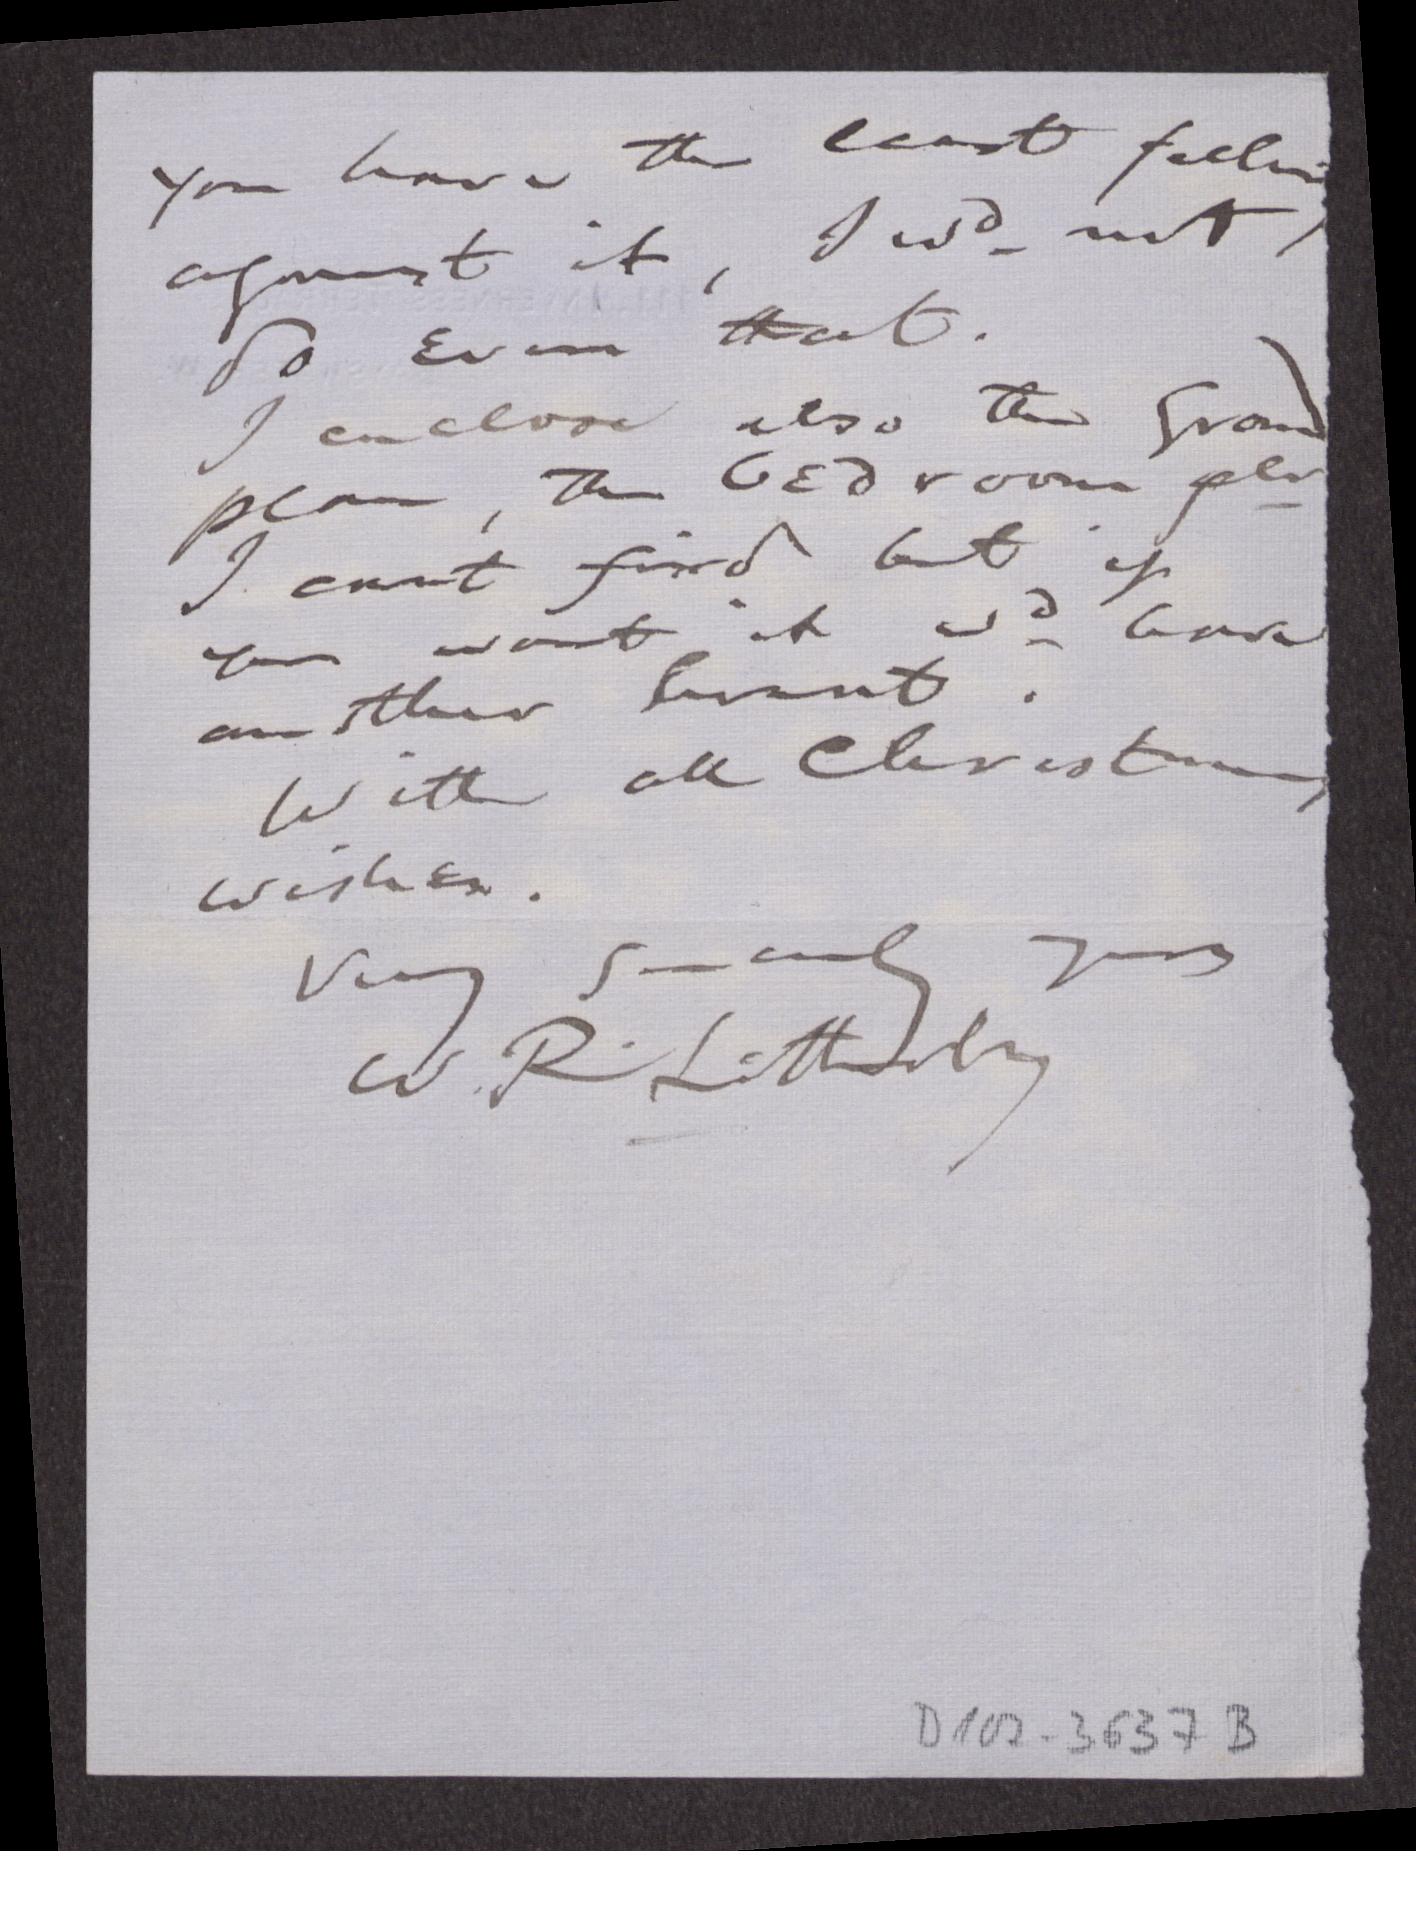 you have the least feeling
against it, I wd not
do even that.
I enclose also the ground
plan, the bedroom plan
I cant find but if
you want it wd have
another burnt.
With all Christmas
wishes.
Very sincerely yours
W. R. Lethaby
D102-3637 B